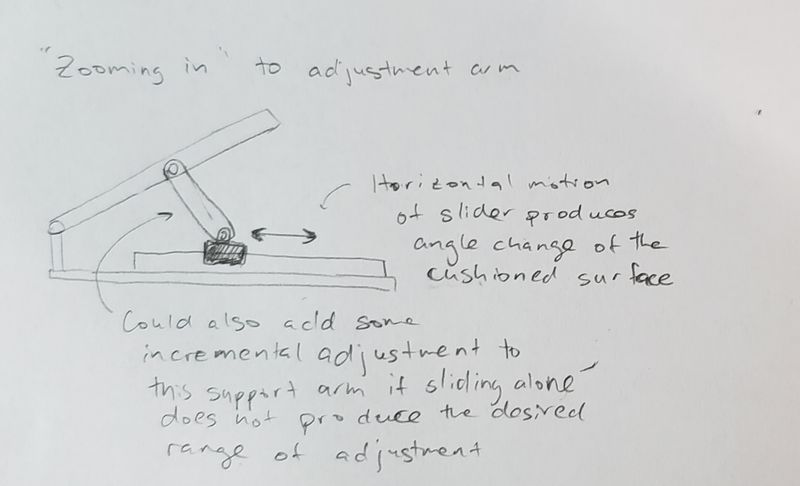 "Zooming in" to adjustment arm
Horizontal motion
of slider produces
angle change of the
cushioned surface
Could also add some
incremental adjustment to
this support arm if sliding alone
does not produce the desired
range of adjustment